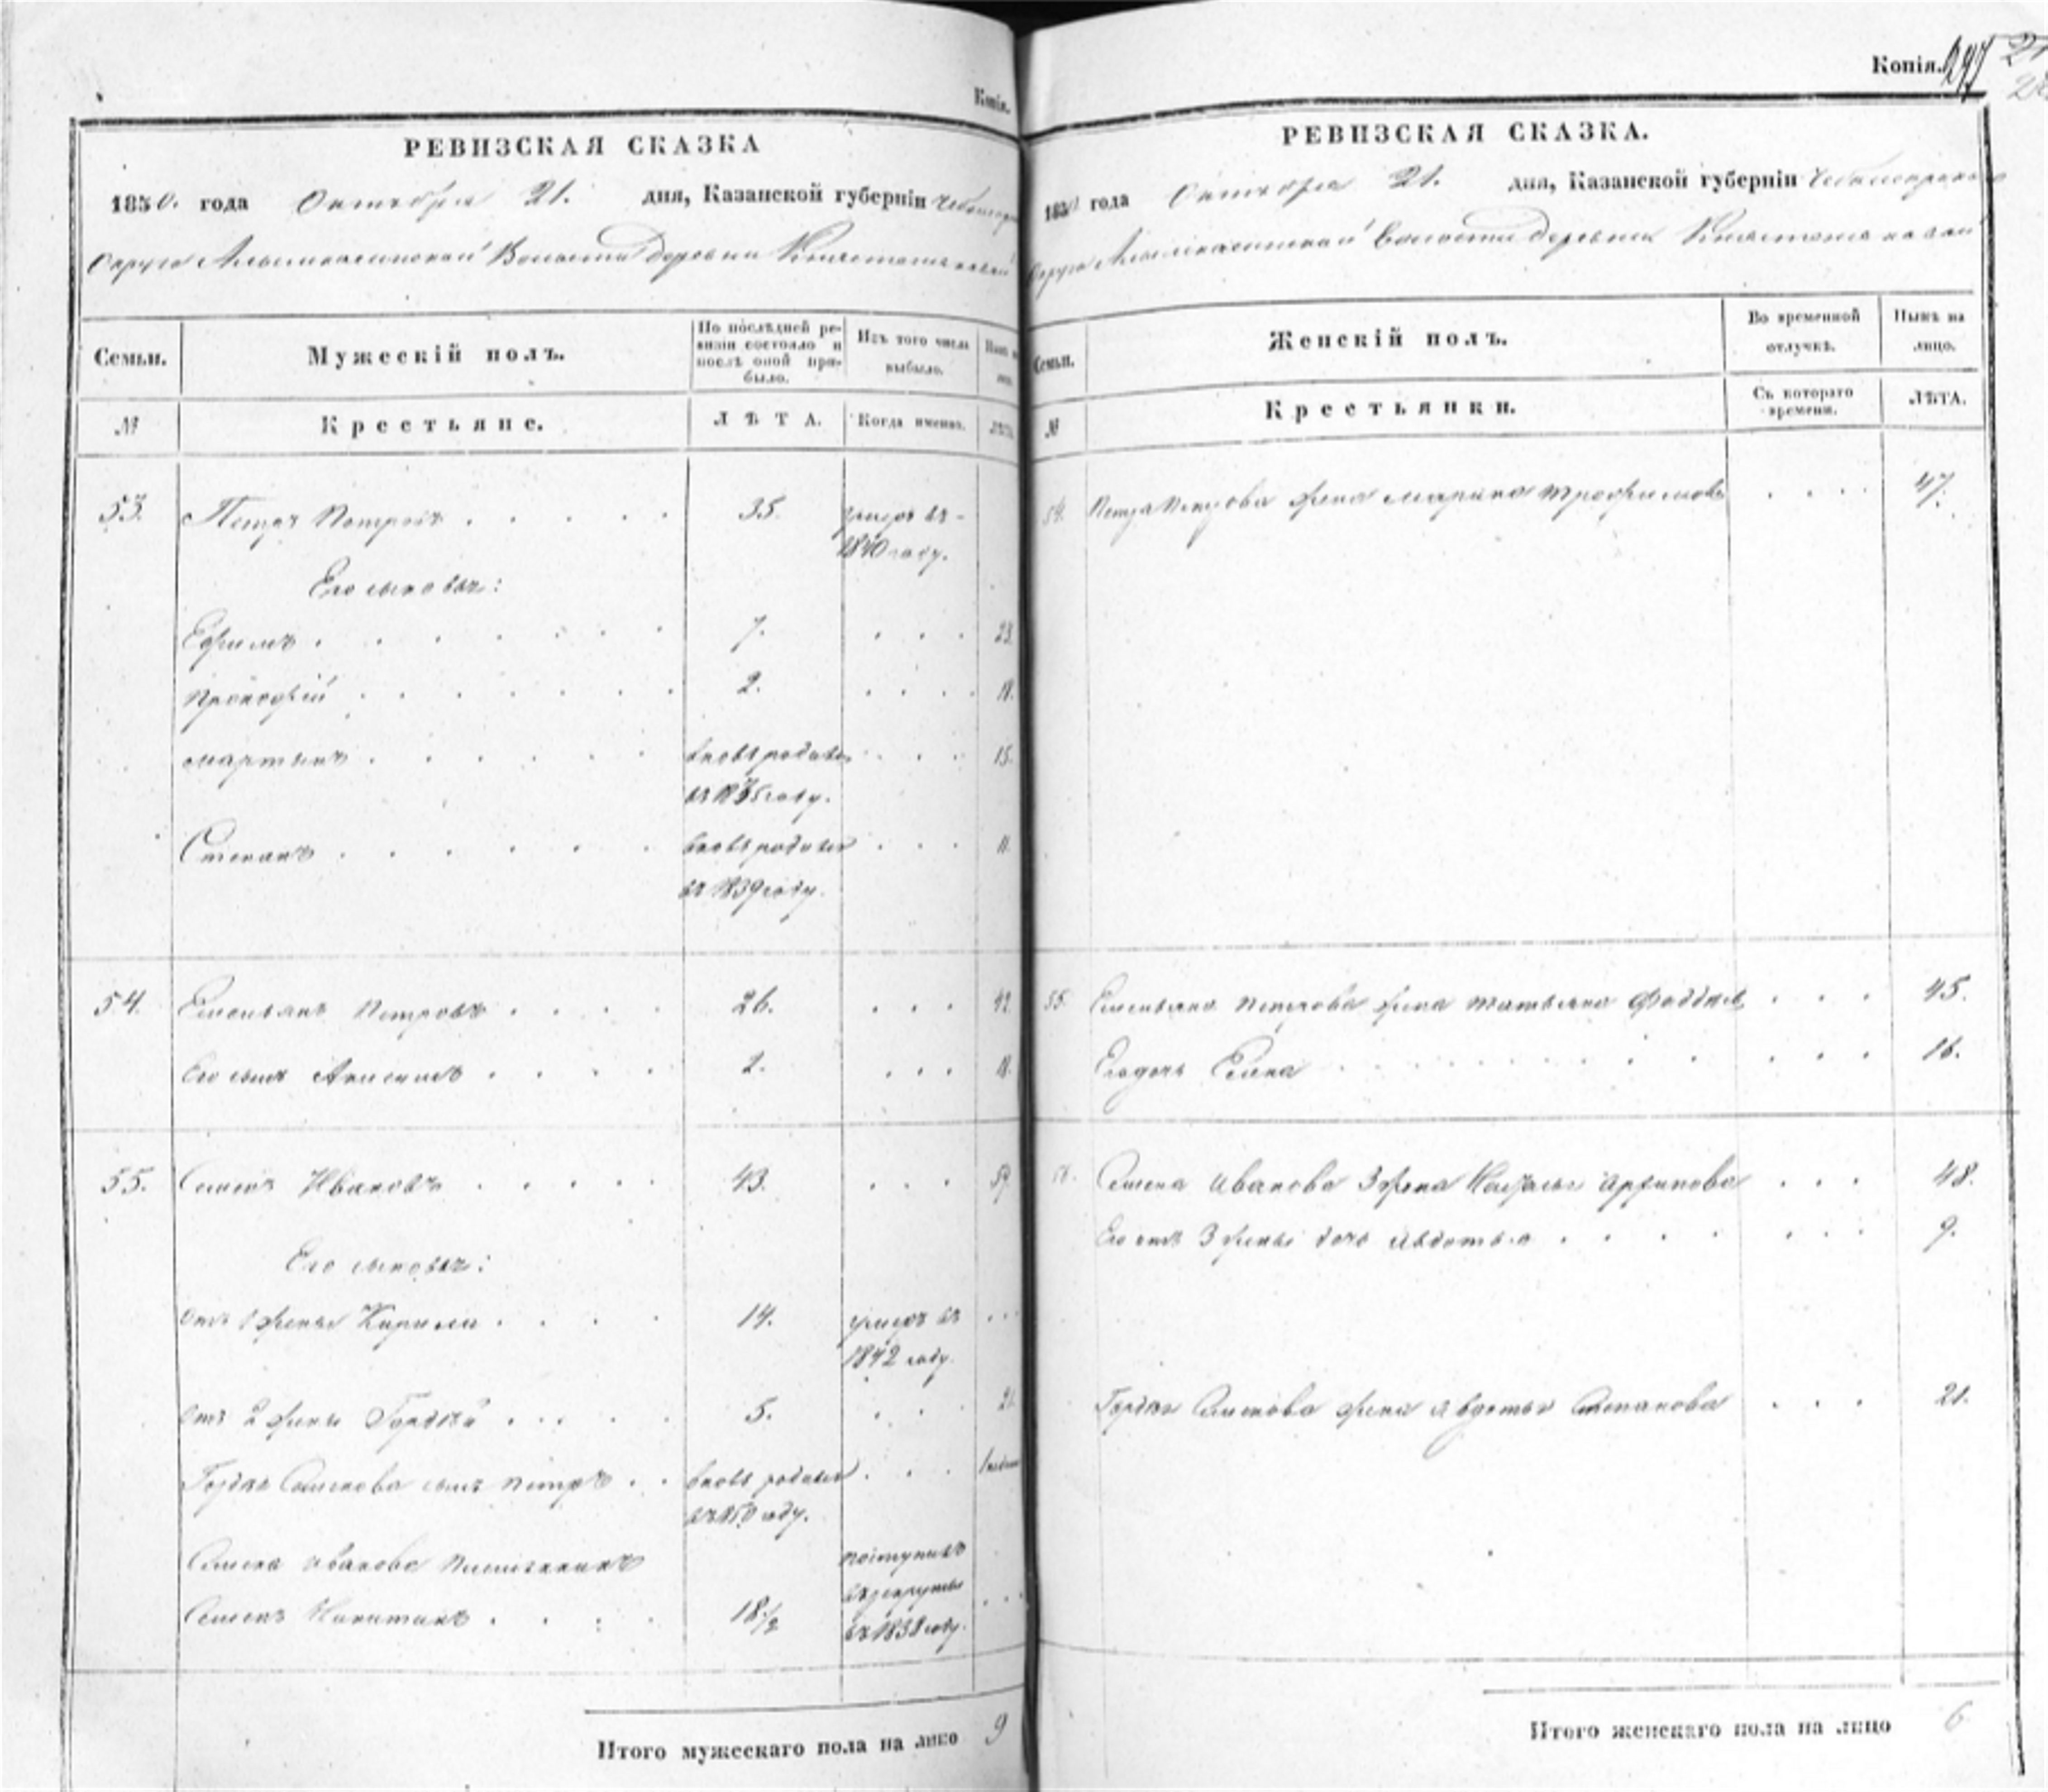 Копія.
РЕВИЗСКАЯ СКАЗКА
1850. года Октября 21. дня, Казанской губерніи
Округа Волости деревни
Семьи. Мужескій полъ. По послѣдней ревизіи состояло и послѣ оной прибыло. Изъ того числа выбыло.
№ Крестьяне. ЛѢТА. Когда именно. ЛѢТА.
53. Петръ Петровъ 35. умеръ въ
1840 году.
Его сыновья:
Ефимъ 7. 23.
Прокофій 2. 18.
Мартынъ вновь родился 15.
въ 1835 году.
Степанъ вновь родился 11.
въ 1839 году.
54. Емельянъ Петровъ 26. 42.
Его сынъ Анисимъ 2. 18.
55. Семенъ Ивановъ 43. 59.
Его сыновья:
отъ 1 жены Кирила 14. умеръ въ
1842 году.
отъ 2 жены Гордѣй 5. 21.
Гордѣя Семенова сынъ Петръ вновь родился
въ 1850 году.
Семена Иванова племянникъ поступилъ
Семенъ Никитинъ 18 1/2 въ рекруты
въ 1838 году.
Итого мужескаго пола на лицо 9
Копія. 247
РЕВИЗСКАЯ СКАЗКА.
1850 года Октября 21. дня, Казанской губерніи Чебоксарскаго
Округа Волости деревни
Семьи. Женскій полъ. Во временной отлучкѣ. Нынѣ на лицо.
№ Крестьянки. Съ котораго времени. ЛѢТА.
54. Петра Петрова жена Марина Трофимова 47.
55. Емельяна Петрова жена Татьяна 45.
Его дочь Елена 16.
56. Семена Иванова 3 жена Наталья Архипова 48.
Его отъ 3 жены дочь Авдотья 9.
Гордѣя Семенова жена Авдотья Степанова 21.
Итого женскаго пола на лицо 6